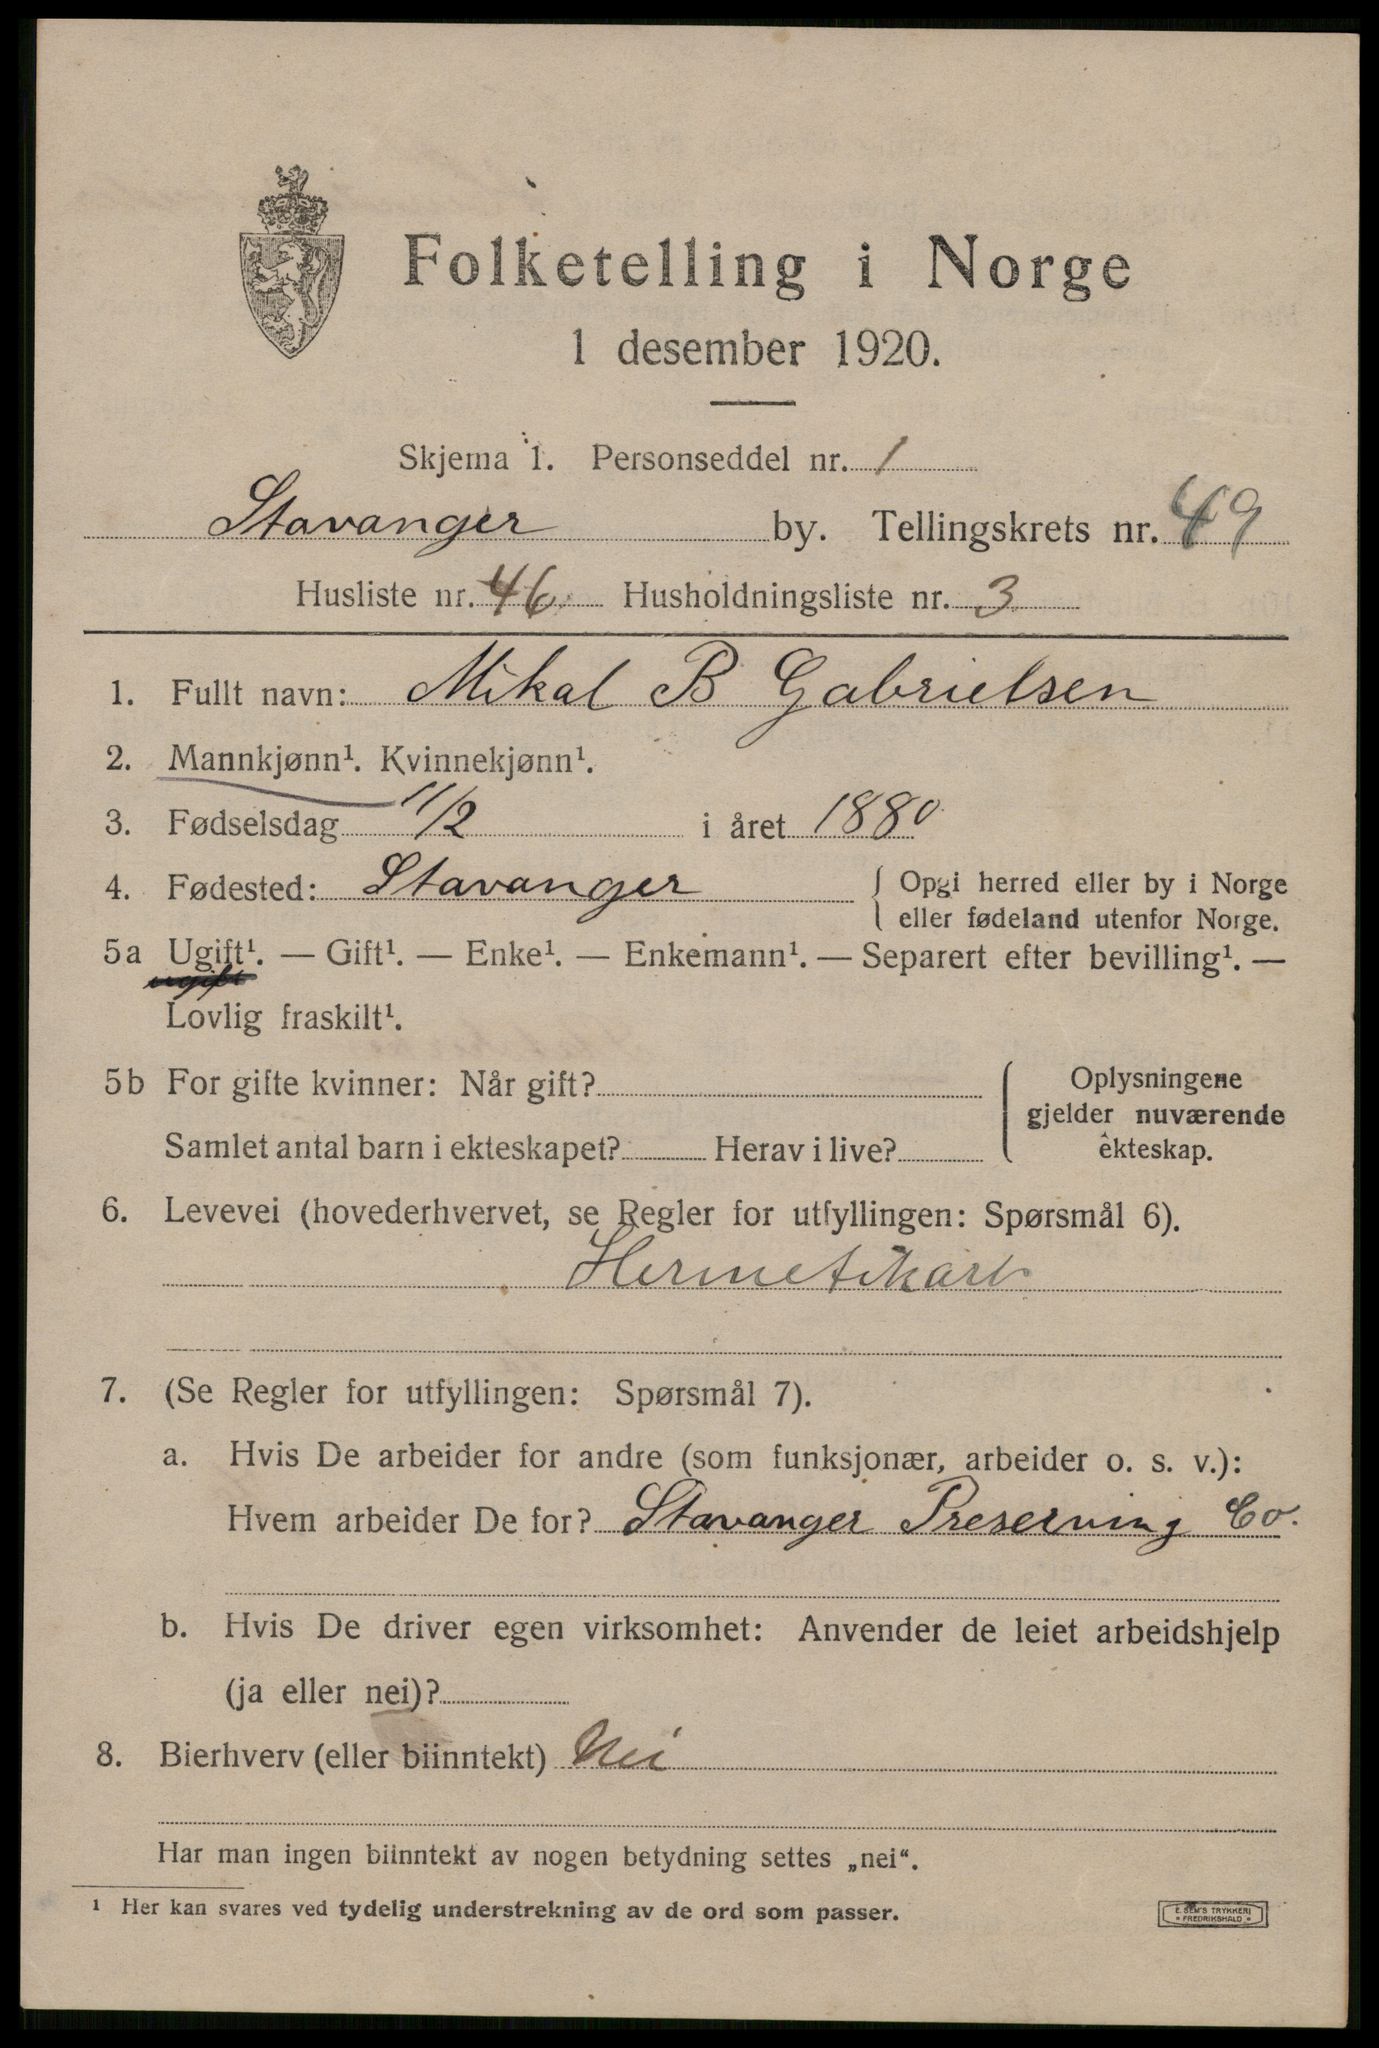 Folketelling i Norge
1 desember 1920.
Skjema 1. Personseddel nr. 1
Stavanger by. Tellingskrets nr. 49
Husliste nr. 46 Husholdningsliste nr. 3
1. Fullt navn: Mikal B Gabrielsen
2. Mannkjønn¹. Kvinnekjønn¹.
3. Fødselsdag 11/2 i året 1880
4. Fødested: Stavanger { Opgi herred eller by i Norge
eller fødeland utenfor Norge.
5a Ugift¹. — Gift¹. — Enke¹. — Enkemann¹. — Separert efter bevilling¹. —
ugift
Lovlig fraskilt¹.
5b For gifte kvinner: Når gift?
Samlet antal barn i ekteskapet? Herav i live?
Oplysningene
gjelder nuværende
ekteskap.
6. Levevei (hovederhvervet, se Regler for utfyllingen: Spørsmål 6).
Hermetikarb
7. (Se Regler for utfyllingen: Spørsmål 7).
a. Hvis De arbeider for andre (som funksjonær, arbeider o. s. v.):
Hvem arbeider De for? Stavanger Preserving Co.
b. Hvis De driver egen virksomhet: Anvender de leiet arbeidshjelp
(ja eller nei)?
8. Bierhverv (eller biinntekt) Nei
Har man ingen biinntekt av nogen betydning settes „nei“.
¹ Her kan svares ved tydelig understrekning av de ord som passer.
E. SEM'S TRYKKERI
* FREDRIKSHALD *